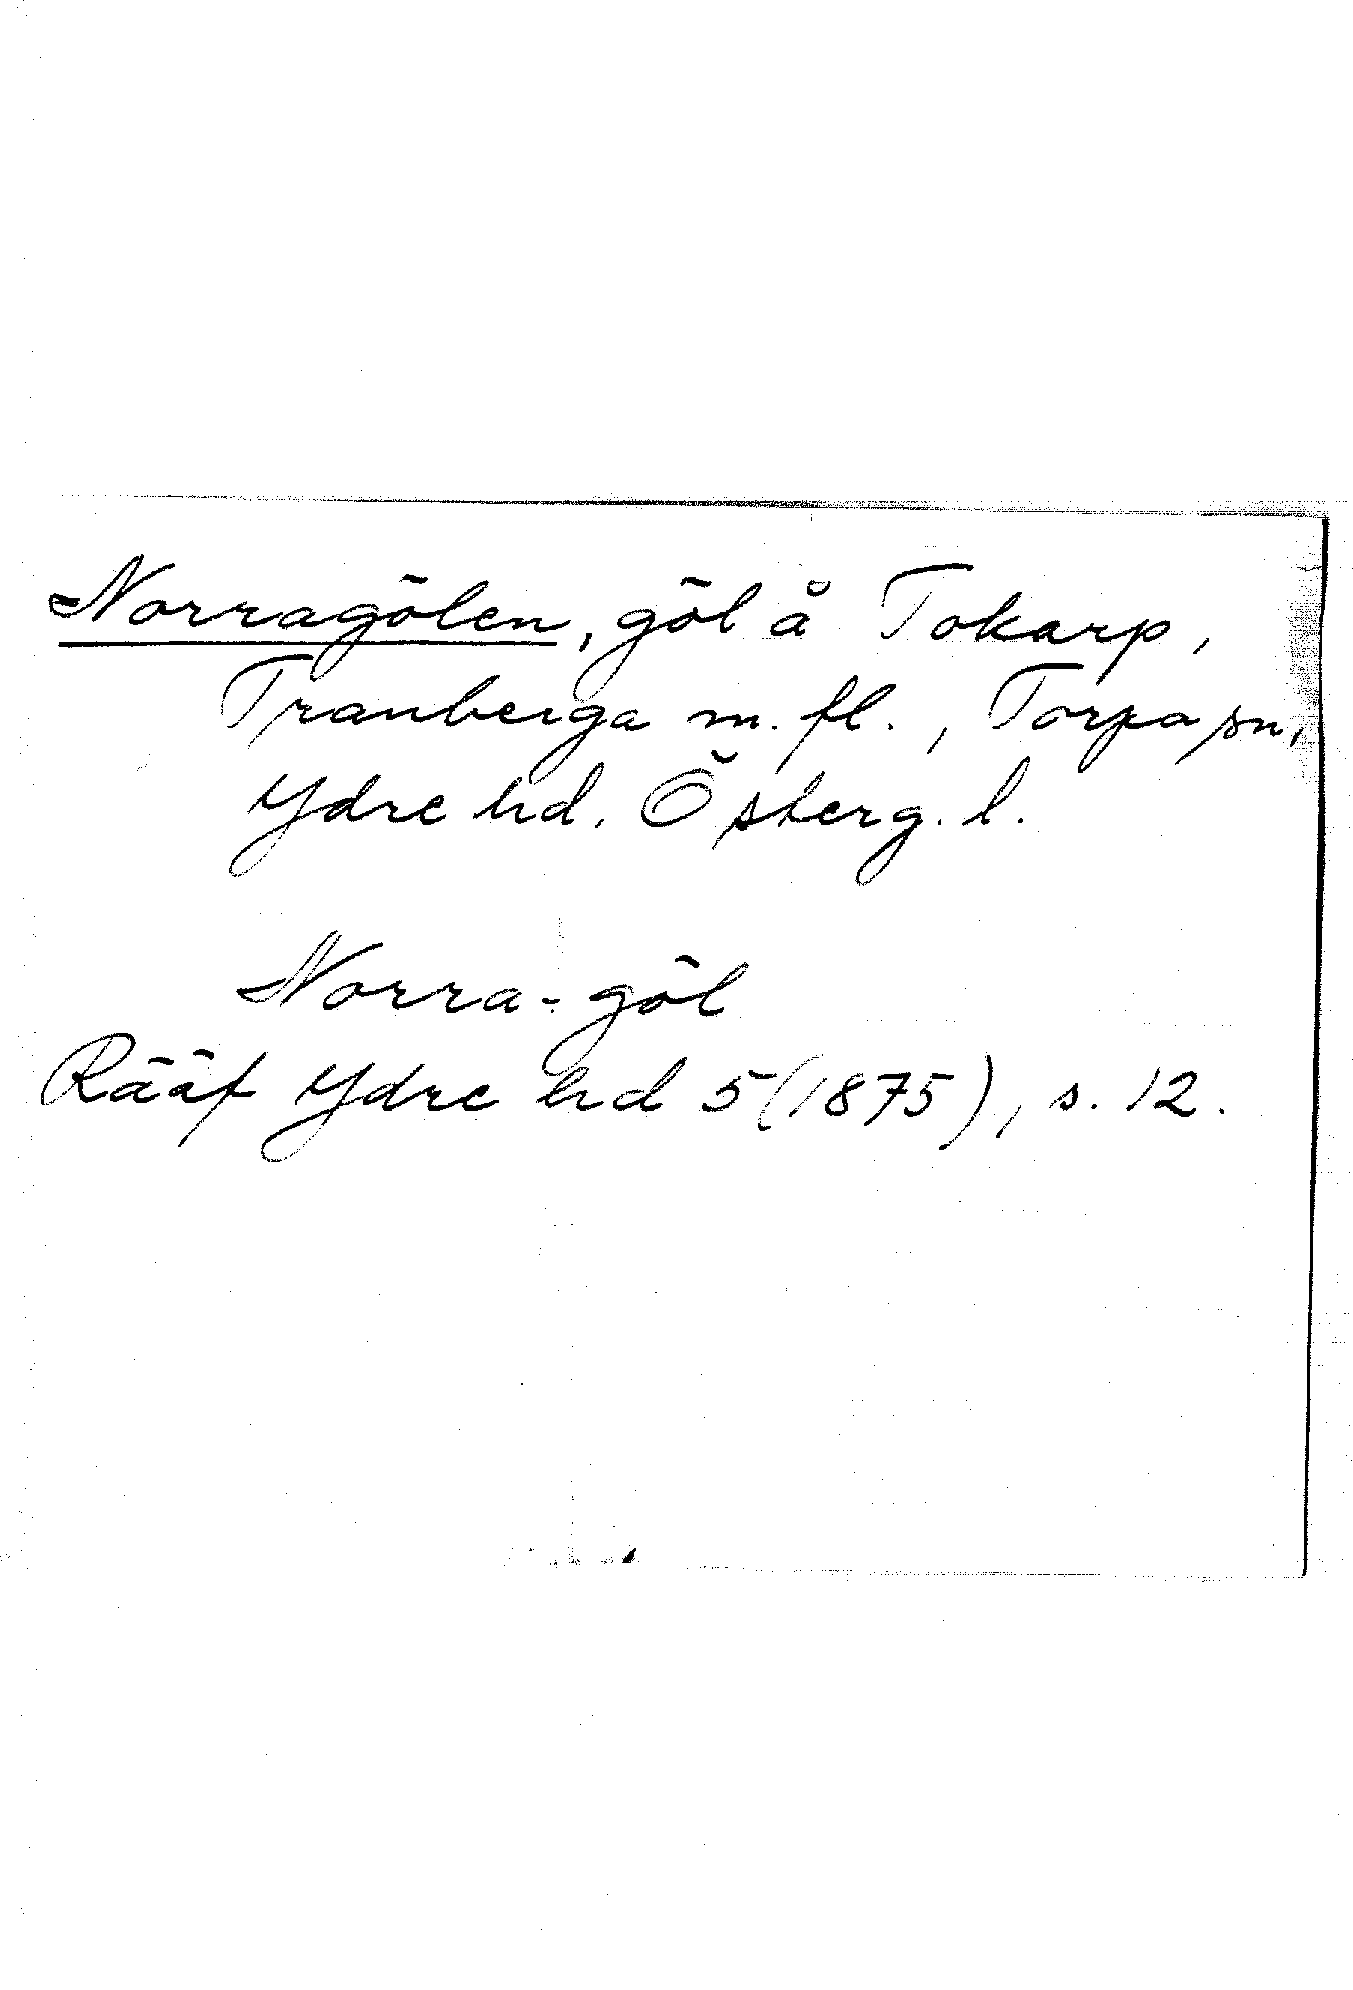 Norragölen, göl å Tokarp,
Tranberga m. fl., Torpa sn,
Ydre hd. Österg. l.
Norra-göl
Rääf Ydre hd 5 (1875), s. 12.